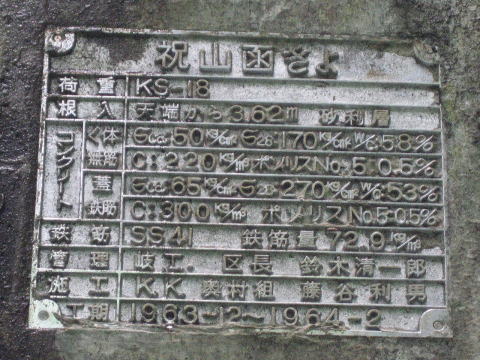 祝山函きよ
荷重 KS-18
根入 天端から3.62m 砂利層
コンクリート
く体 無筋 σca:50kg/cm² σ28:170kg/cm² W/C:58%
C:220kg/m³ ポゾリスNo.5:0.5%
蓋 鉄筋 σca:65kg/cm² σ28:270kg/cm² W/C:53%
C:300kg/m³ ポゾリスNo.5:0.5%
鉄筋 SS41 鉄筋量 72.9kg/m³
管理 岐工. 区長 鈴木清一郎
施工 K.K 奥村組 藤谷利男
工期 1963-12~1964-2